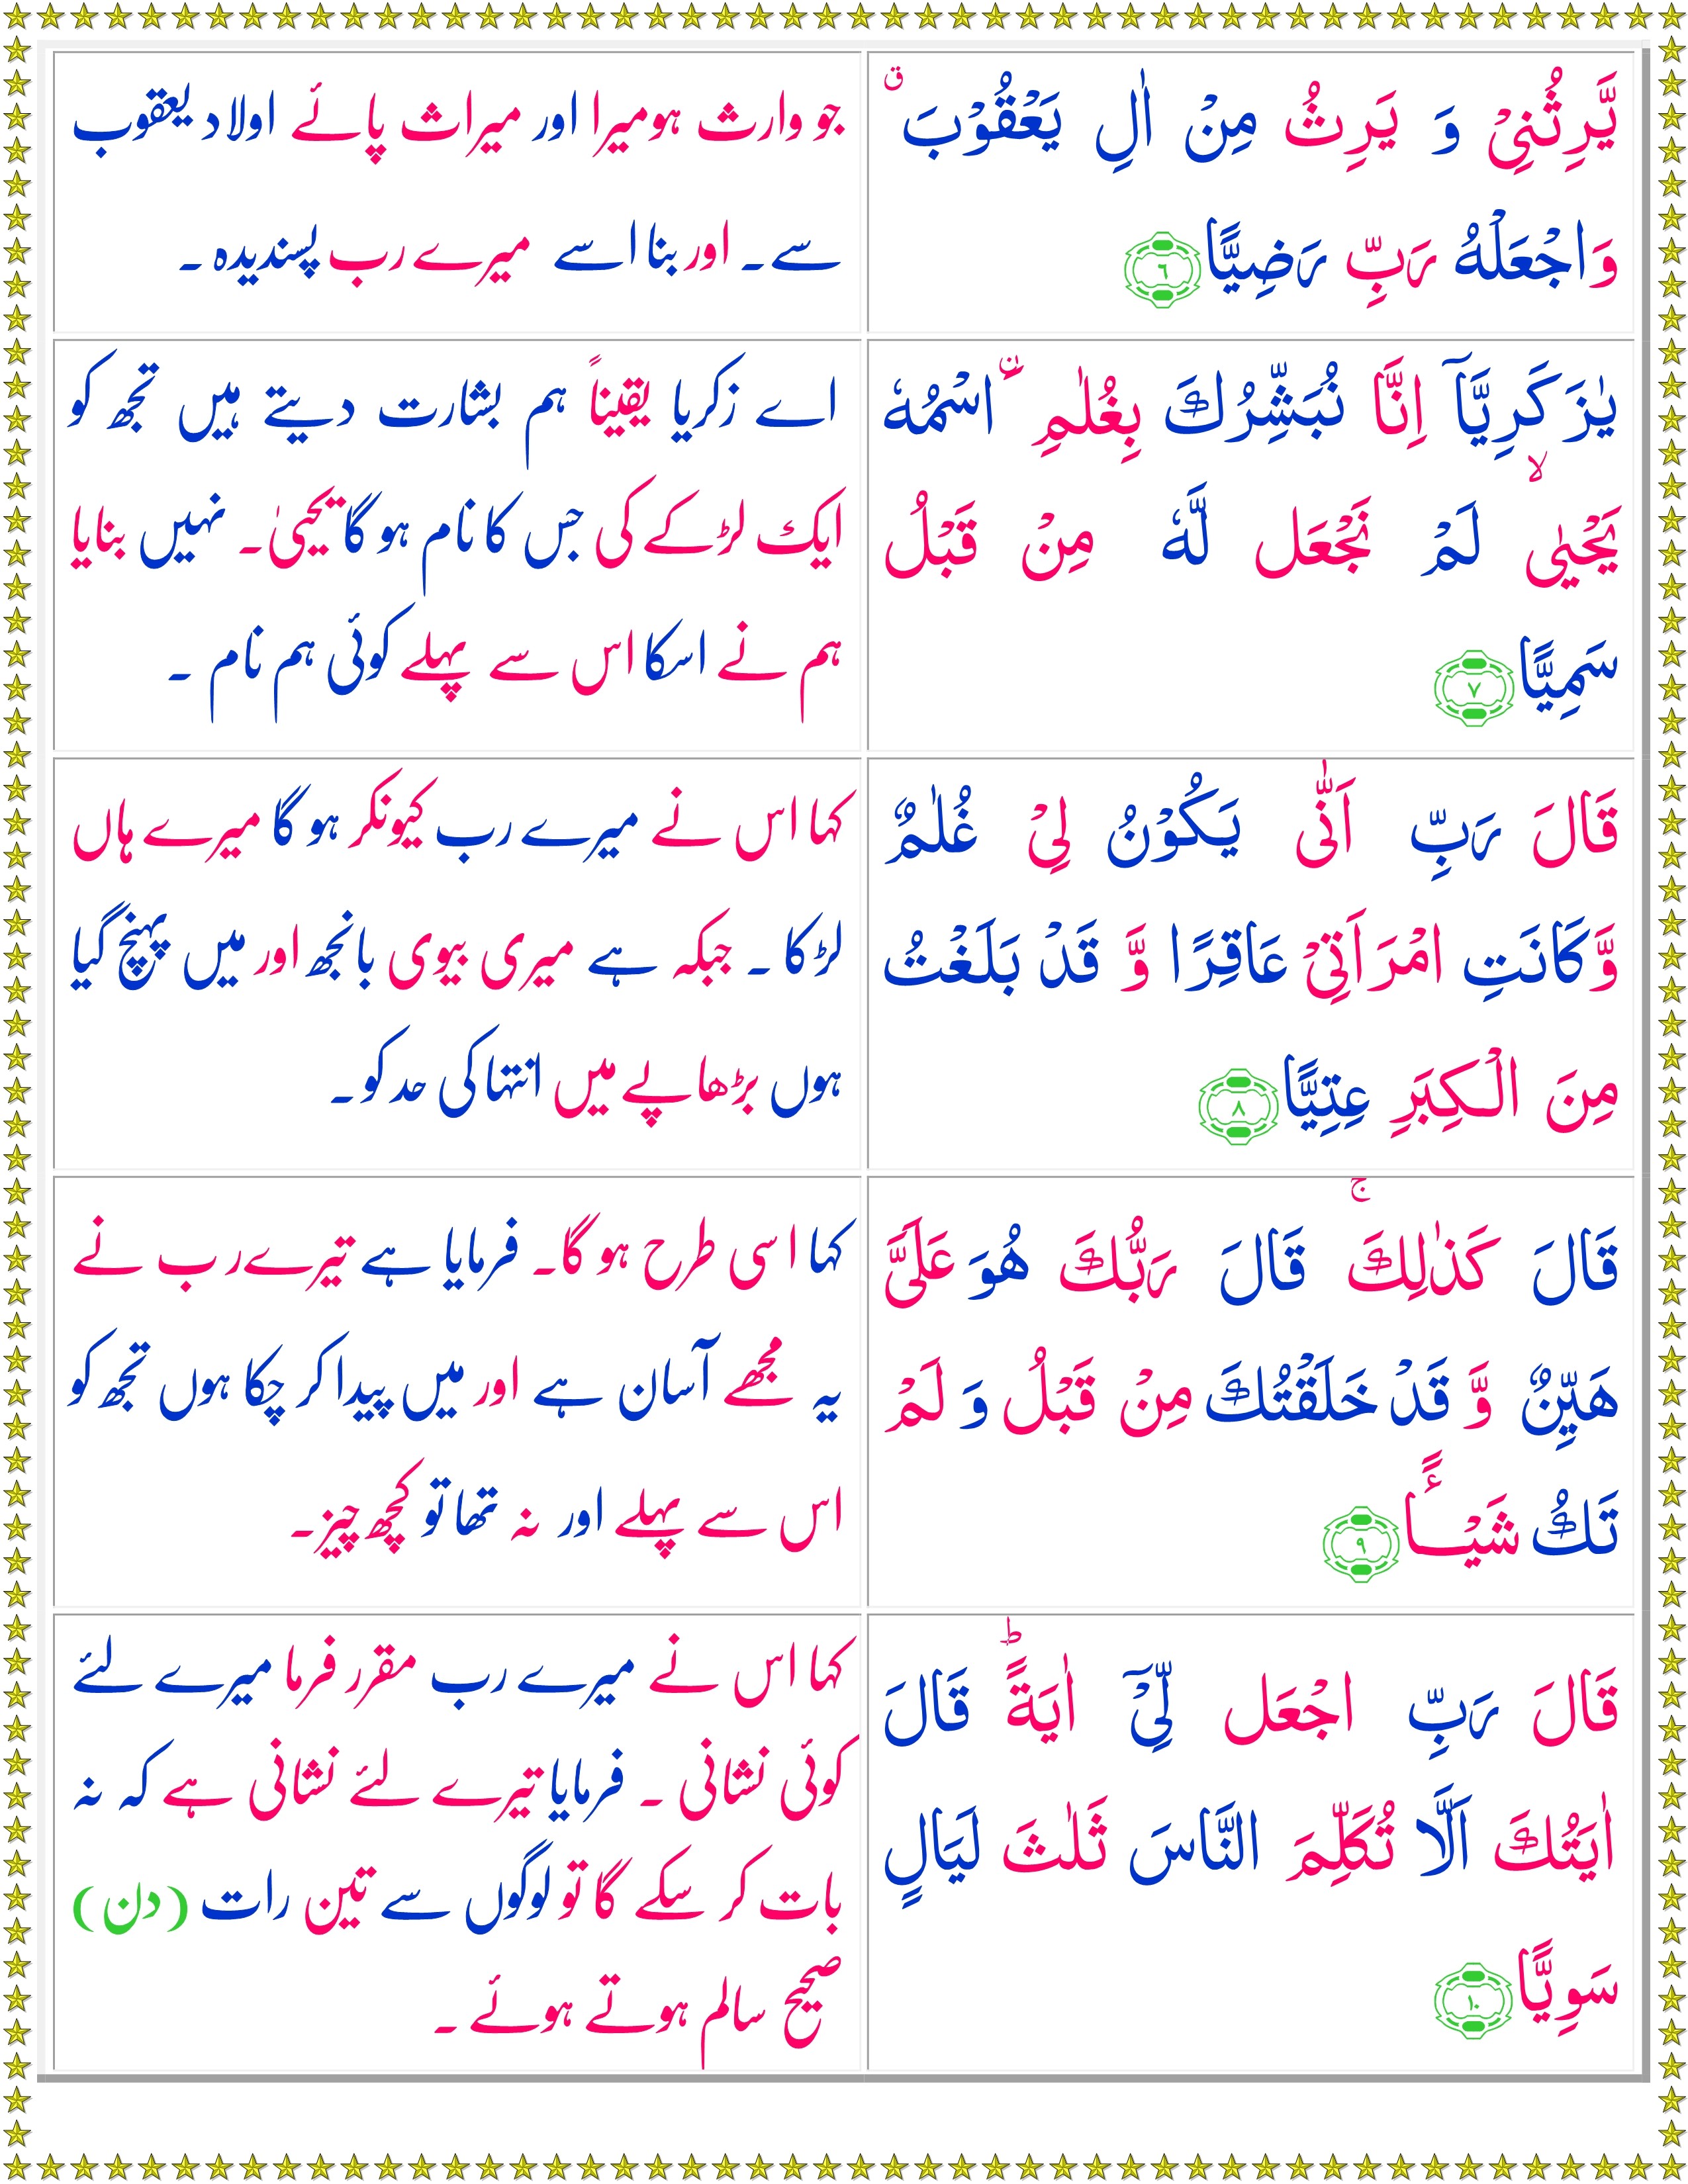 يَّرِثُنِىۡ وَ يَرِثُ مِنۡ اٰلِ يَعۡقُوۡبَ ۖ
وَاجۡعَلۡهُ رَبِّ رَضِيًّا ﴿۶﴾
جو وارث ہو میرا اور میراث پائے اولاد یعقوب
سے۔ اور بنا اسے میرے رب پسندیدہ ۔
يٰزَكَرِيَّاۤ اِنَّا نُبَشِّرُكَ بِغُلٰمِ ۨ اسۡمُهٗ
يَحۡيٰى ۙ لَمۡ نَجۡعَل لَّهٗ مِنۡ قَبۡلُ
سَمِيًّا ﴿۷﴾
اے زکریا یقیناً ہم بشارت دیتے ہیں تجھ کو
ایک لڑکے کی جس کا نام ہو گا یحییٰ۔ نہیں بنایا
ہم نے اسکا اس سے پہلے کوئی ہم نام ۔
قَالَ رَبِّ اَنّٰى يَكُوۡنُ لِىۡ غُلٰمٌ
وَّكَانَتِ امۡرَاَتِىۡ عَاقِرًا وَّ قَدۡ بَلَغۡتُ
مِنَ الۡكِبَرِ عِتِيًّا ﴿۸﴾
کہا اس نے میرے رب کیونکر ہو گا میرے ہاں
لڑکا ۔ جبکہ ہے میری بیوی بانجھ اور میں پہنچ گیا
ہوں بڑھاپے میں انتہا کی حد کو۔
قَالَ كَذٰلِكَ‌ۚ قَالَ رَبُّكَ هُوَ عَلَىَّ
هَيِّنٌ وَّ قَدۡ خَلَقۡتُكَ مِنۡ قَبۡلُ وَ لَمۡ
تَكُ شَيۡـًٔـا ﴿۹﴾
کہا اسی طرح ہو گا۔ فرمایا ہے تیرے رب نے
یہ مجھے آسان ہے اور میں پیدا کر چکا ہوں تجھ کو
اس سے پہلے اور نہ تھا تو کچھ چیز۔
قَالَ رَبِّ اجۡعَل لِّىۡۤ اٰيَةً‌ ؕ قَالَ
اٰيَتُكَ اَلَّا تُكَلِّمَ النَّاسَ ثَلٰثَ لَيَالٍ
سَوِيًّا ﴿۱۰﴾
کہا اس نے میرے رب مقرر فرما میرے لئے
کوئی نشانی ۔ فرمایا تیرے لئے نشانی ہے کہ نہ
بات کر سکے گا تو لوگوں سے تین رات (دن)
صحیح سالم ہوتے ہوئے ۔